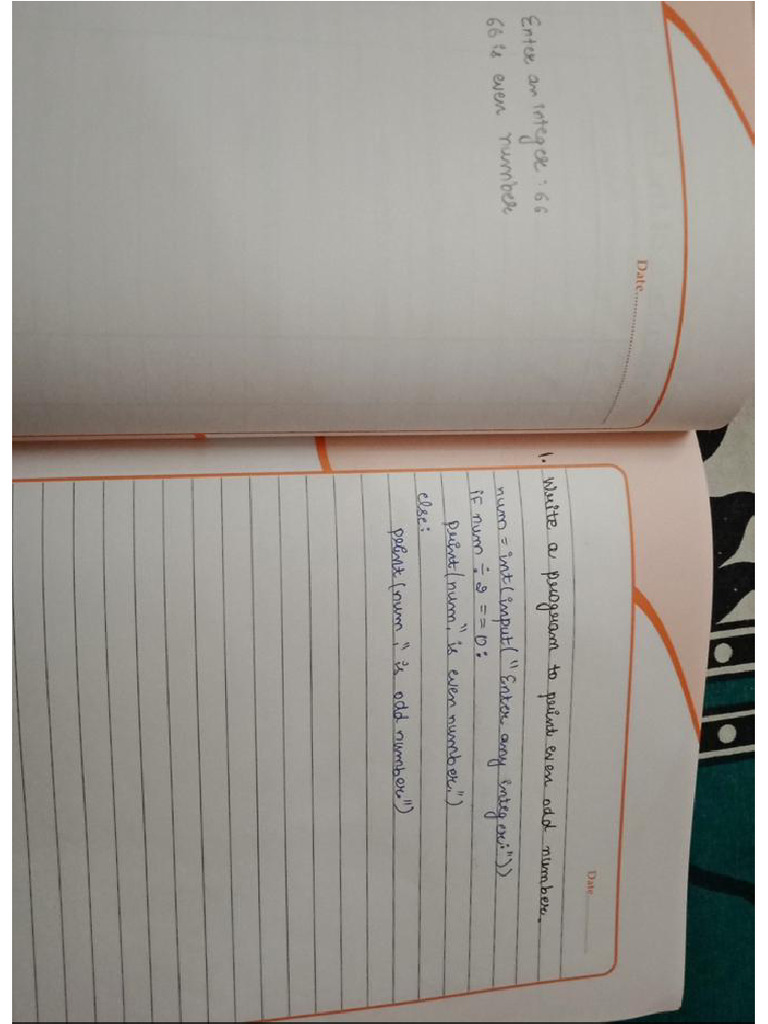 Date
Enter an integer : 66
66 is even number
Date
1. Write a program to print even odd number.
num = int(input("Enter any integer:"))
if num ÷ 2 == 0:
print(num," is even number.")
else:
print(num," is odd number")